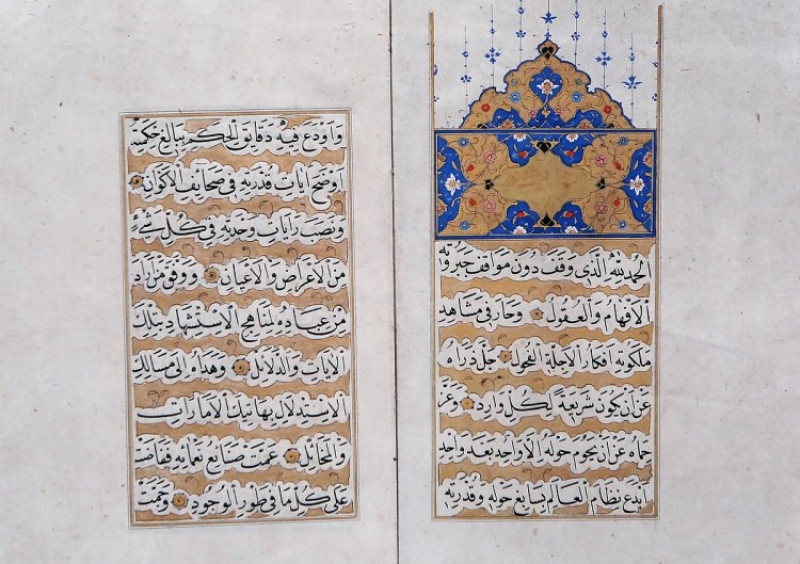 الحمد لله الذى وقف دون مواقف جبروته
الافهام والعقول وحار فى مشاهد
ملكوته افكار الاجلة الفحول جل ذراه
عن ان يكون شريعة لكل وارد وعز
حماه عن ان يحوم حوله الا واحد بعد واحد
ابدع نظام العالم بسابغ حوله وقدرته
واودع فيه دقايق الحكم ببالغ حكمته
اوضح ايات قدرته فى صحايف الاكوان
ونصب رايات وحدته فى كل شئ
من الاعراض والاعيان ووفق من اراد
من عباده لمناهج الاستشهاد بتلك
الايات والدلايل وهداه الى مسالك
الاستدلال بهاتيك الامارات
والمخايل عمت صنايع نعمائه ففاضت
على كل ما فى طور الوجود وجمت